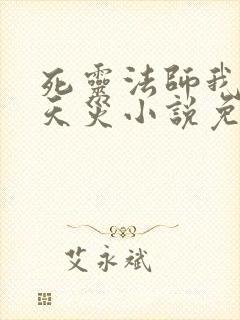 死靈法師我
天災小說免
艾永斌